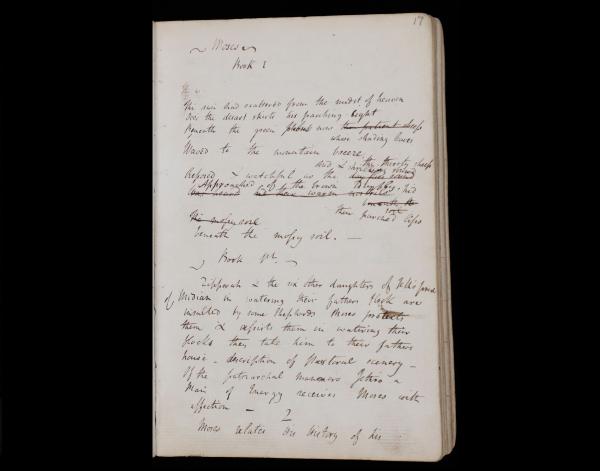 17
Moses
Book I
The sun had scattered from the midst of heaven
Over the desart skirts his parching light
Beneath the green plane now the patient sheep
whose shading leaves
Waved to the mountain breeze
the thirsty sheep
Reposed & watchful as the
Approached of the brown
their parched lips
The mossy soil
beneath the mossy soil. —
Book 1st.
Zipporah & the six other daughters of Jethro
of Midian in watering their fathers flock are
insulted by some Shepherds Moses protects
them & assists them in watering their
flocks they take him to their fathers
house — description of Pastoral scenery —
Of the patriarchal manners Jethro a
Man of Energy receives Moses with
affection —
Moses relates the history of his